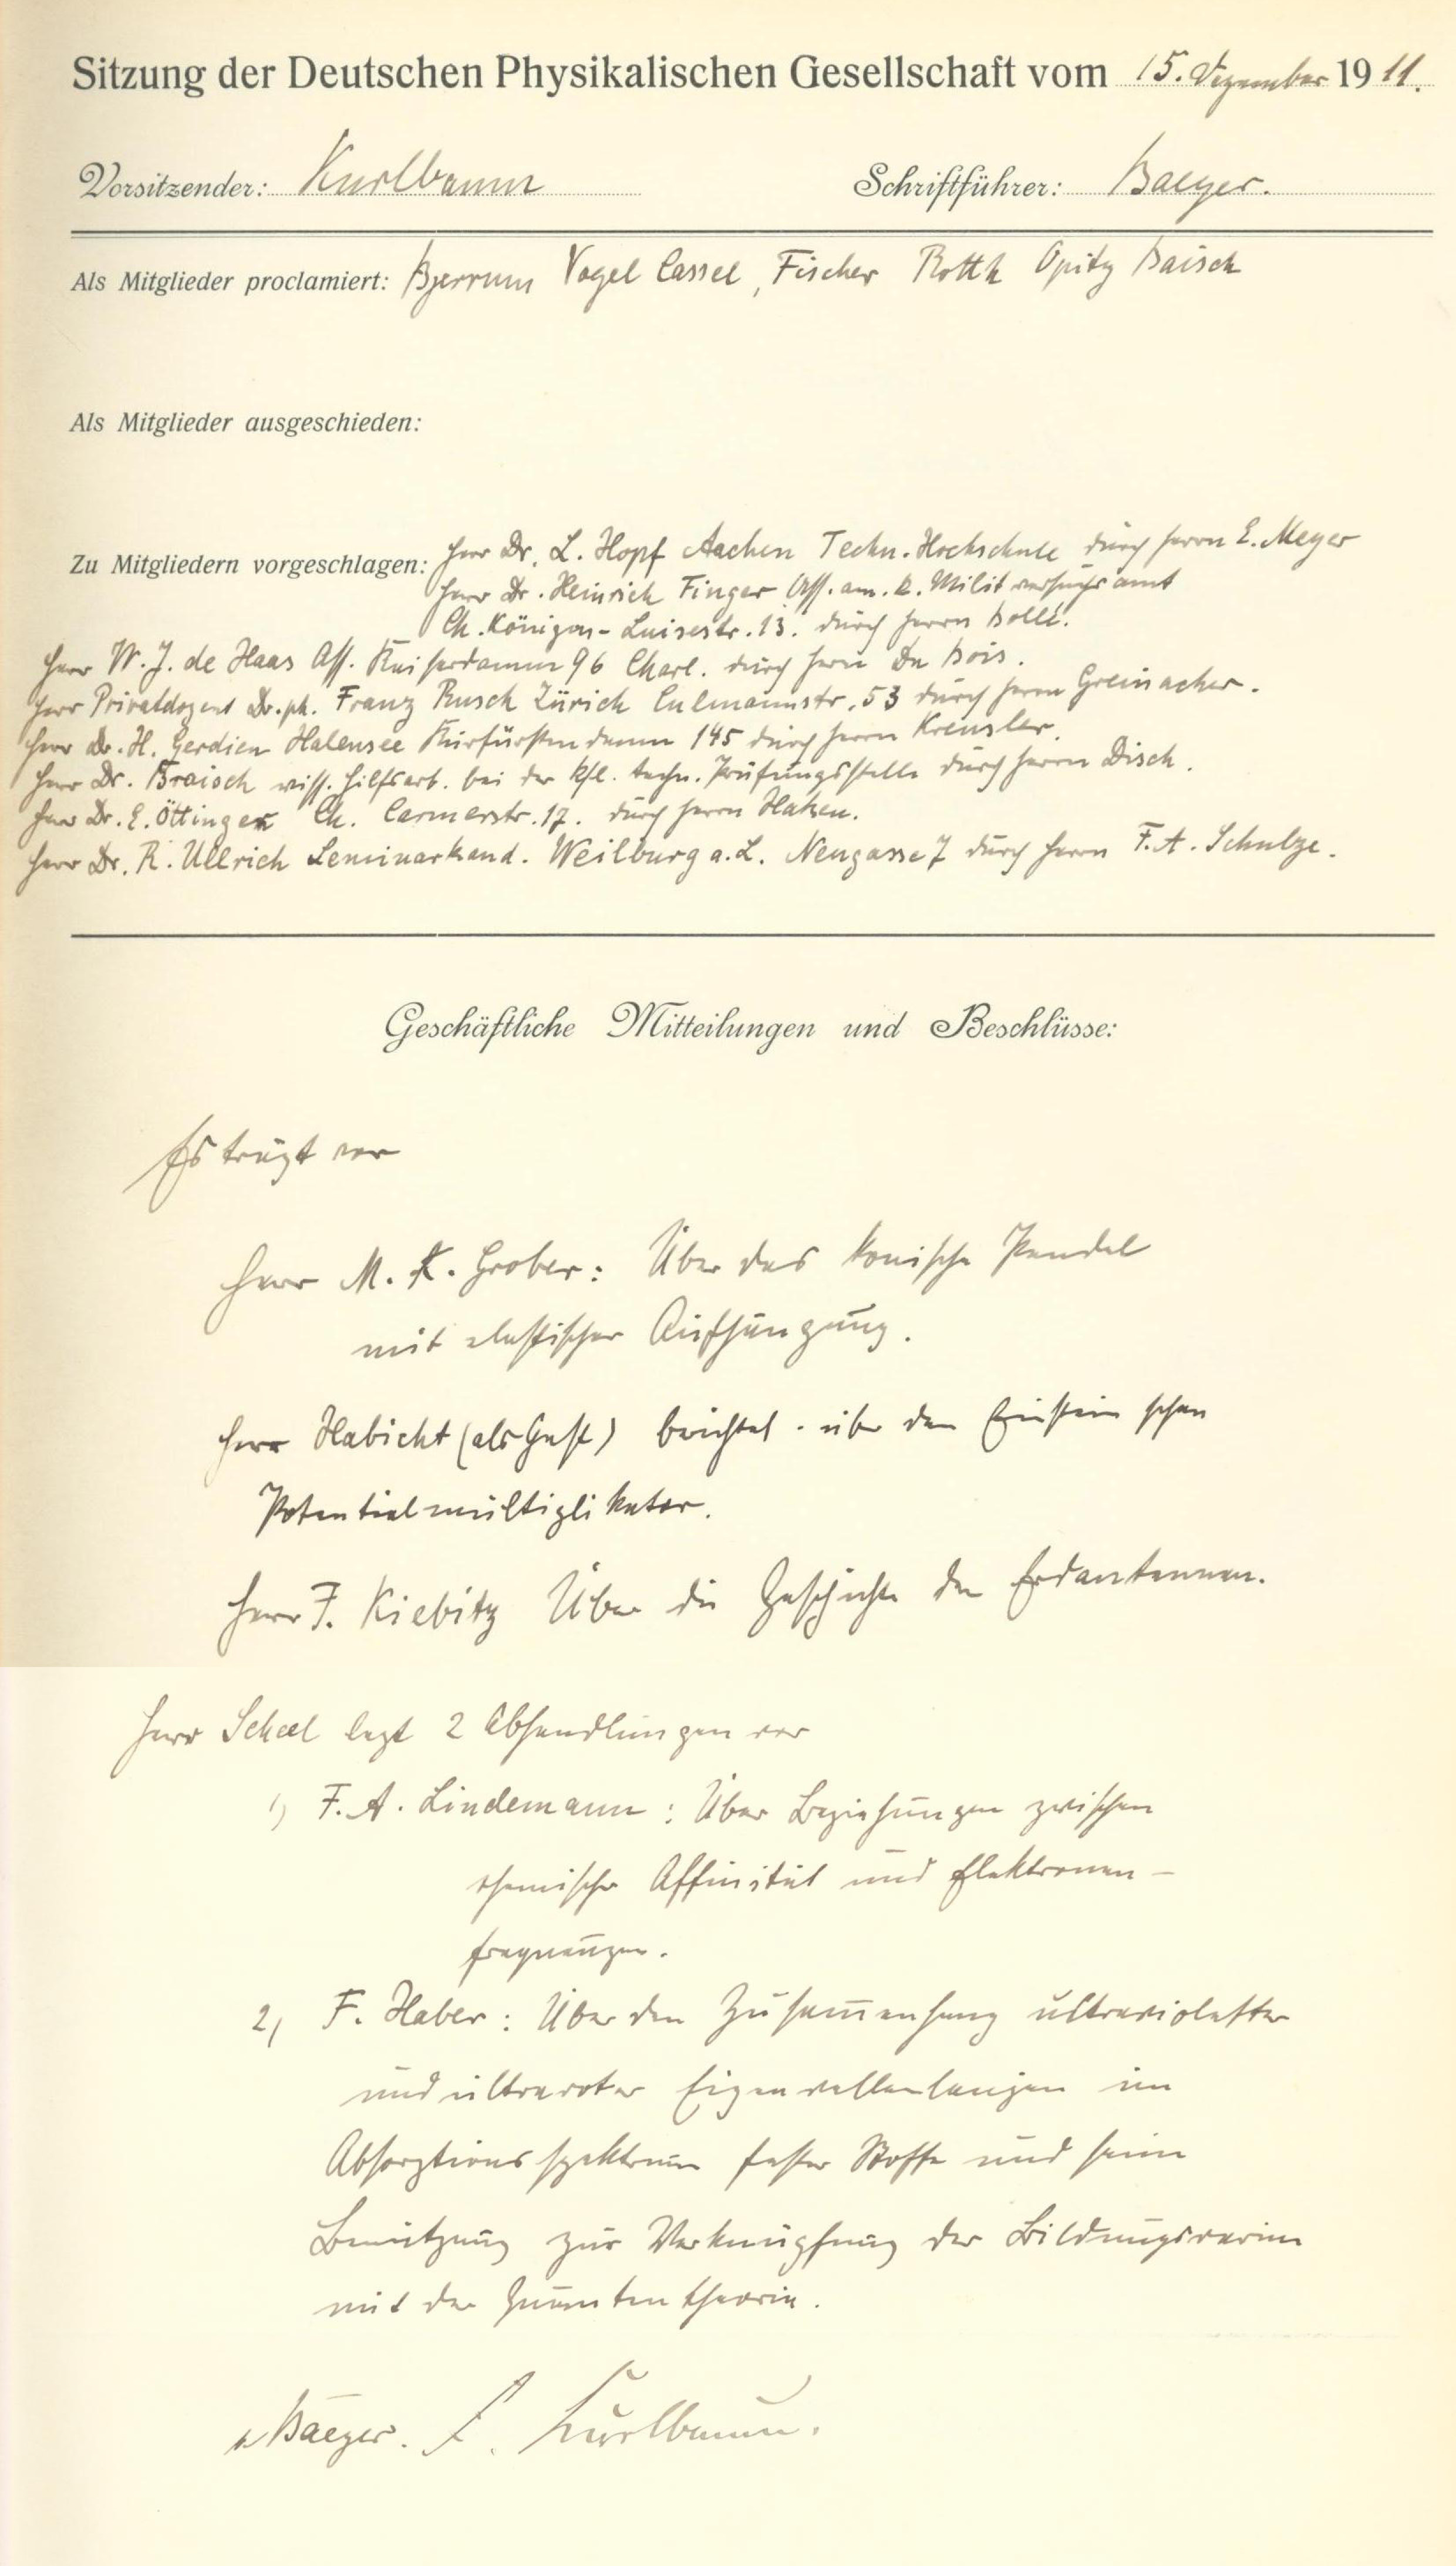 Sitzung der Deutschen Physikalischen Gesellschaft vom 15. Dezember 1911.
Vorsitzender: Kurlbaum Schriftführer: Baeyer.
Als Mitglieder proclamiert: Bjerrum Vogel Cassel, Fischer Rotth Opitz Baisch
Als Mitglieder ausgeschieden:
Zu Mitgliedern vorgeschlagen: Herr Dr. L. Hopf Aachen Techn. Hochschule durch Herrn E. Meyer
Herr Dr. Heinrich Finger Ass. am. k. Milit versuchsamt
Ch. Königin-Luisestr. 13. durch Herrn Bollé.
Herr W. J. de Haas Ass. Kaiserdamm 96 Charl. durch Herrn Du Bois.
Herr Privatdozent Dr. ph. Franz Rusch Zürich Culmannstr. 53 durch Herrn Greinacher.
Herr Dr. H. Gerdien Halensee Kurfürstendamm 145 durch Herrn Kreusler.
Herr Dr. Braisch wiss. Hilfsarb. bei der techn. Prüfungsstelle durch Herrn Disch.
Herr Dr. E. Öttinger Ch. Carmerstr. 17. durch Herrn Haken.
Herr Dr. R. Ullrich Seminarkand. Weilburg a. L. Neugasse 7 durch Herrn F. A. Schulze.
Geschäftliche Mitteilungen und Beschlüsse:
Es trägt vor
Herr M. K. Grober: Über das konische Pendel
mit elastischer Aufhängung.
Herr Habicht (als Gast) berichtet über den Einstein schen
Potentialmultiplikator.
Herr F. Kiebitz Über die Geschichte der Erdantennen.
Herr Scheel legt 2 Abhandlungen vor
1) F. A. Lindemann: Über Beziehungen zwischen
chemischer Affinität und Elektronen-
frequenzen.
2) F. Haber: Über den Zusam̄enhang ultravioletter
und ultraroter Eigenwellenlängen im
Absorptionsspektrum fester Stoffe und seine
Benutzung zur Verknüpfung der Bildungswärme
mit der Quantentheorie.
v Baeyer. F. Kurlbaum.